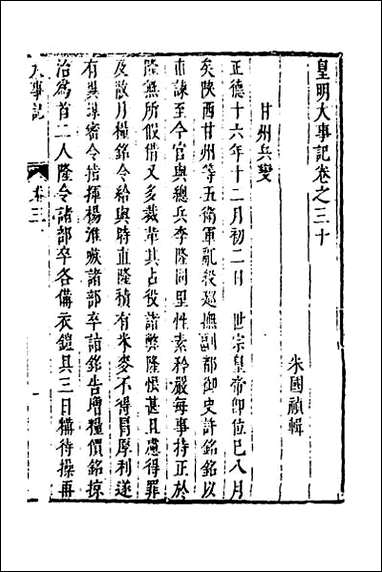 皇明大事記卷之三十
朱國禎輯
甘州兵變
正德十六年十二月初二日 世宗皇帝卽位已八月
矣陝西甘州等五衛軍亂殺巡撫副都御史許銘銘以
直諫至今官與總兵李隆同里性素矜嚴每事持正於
隆無所假借又多裁革其占役諸弊隆恨甚且慮得罪
及散月糧銘令給與時直隆積有米麥不得冒厚利遂
有異謀密令指揮楊淮嗾諸部卒詣銘告增糧價銘掠
治爲首二人隆令諸部卒各備衣鎧具三日糒待操再
大事記 卷三